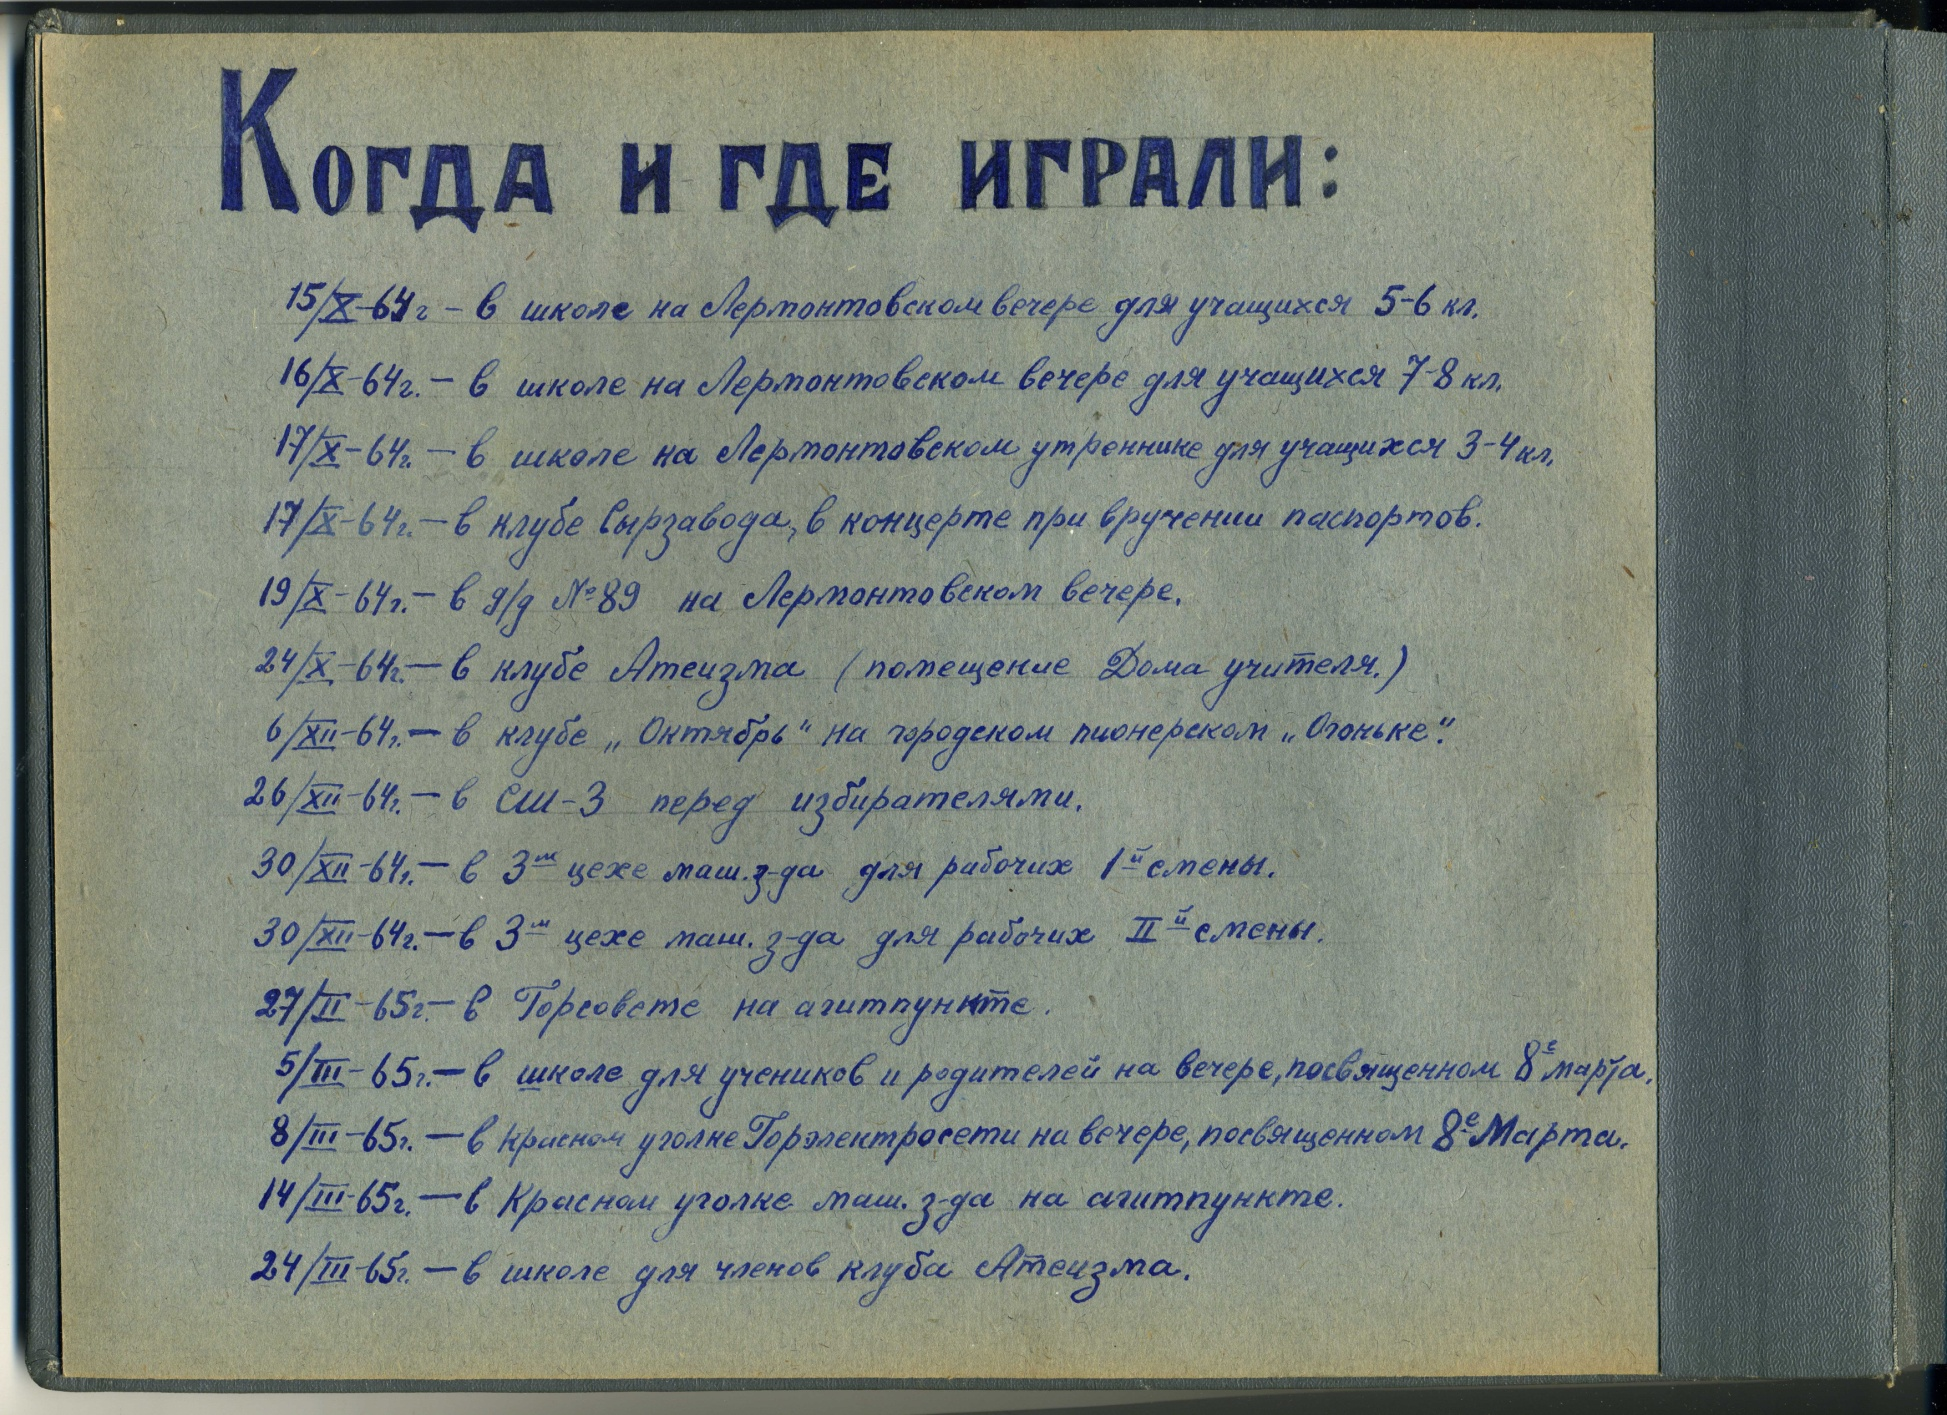 Когда и где играли:
15/X-64г - в школе на Лермонтовском вечере для учащихся 5-6 кл.
16/X-64г. - в школе на Лермонтовском вечере для учащихся 7-8 кл.
17/X-64г. - в школе на Лермонтовском утреннике для учащихся 3-4 кл.
17/X-64г. - в клубе Сырзавода, в концерте при вручении паспортов.
19/X-64г. - в д/д №89 на Лермонтовском вечере.
24/X-64г. - в клубе Атеизма (помещение Дома учителя.)
6/XII-64г. - в клубе „Октябрь" на городском пионерском „Огоньке".
26/XII-64г. - в СШ-3 перед избирателями.
30/XII-64г. - в 3м цехе маш. з-да для рабочих 1й смены.
30/XII-64г. - в 3м цехе маш. з-да для рабочих IIй смены.
27/II-65г. - в Горсовете на агитпункте.
5/III-65г. - в школе для учеников и родителей на вечере, посвященном 8е марта.
8/III-65г. - в Красном уголке Горэлектросети на вечере, посвященном 8е Марта.
14/III-65г. - в Красном уголке маш. з-да на агитпункте.
24/III-65г. - в школе для членов клуба Атеизма.